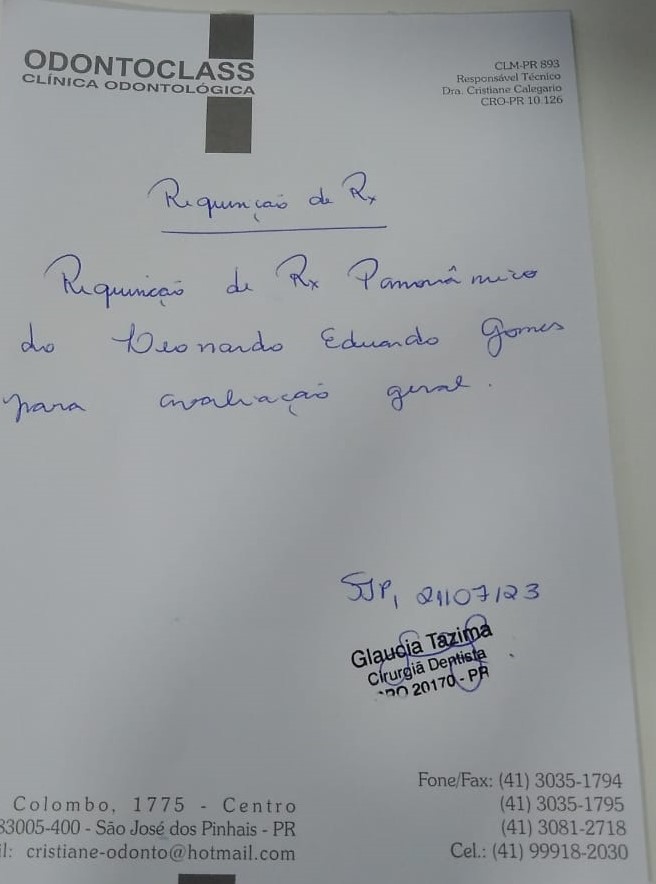 ODONTOCLASS
CLÍNICA ODONTOLÓGICA
CLM-PR 893
Responsável Técnico
Dra. Cristiane Calegario
CRO-PR 10.126
Requisição de Rx
Requisição de Rx Panorâmico
do Leonardo Eduardo Gomes
para avaliação geral.
SJP, 21/07/23
Glaucia Tazima
Cirurgiã Dentista
CRO 20170 - PR
Colombo, 1775 - Centro
83005-400 - São José dos Pinhais - PR
il: cristiane-odonto@hotmail.com
Fone/Fax: (41) 3035-1794
(41) 3035-1795
(41) 3081-2718
Cel.: (41) 99918-2030